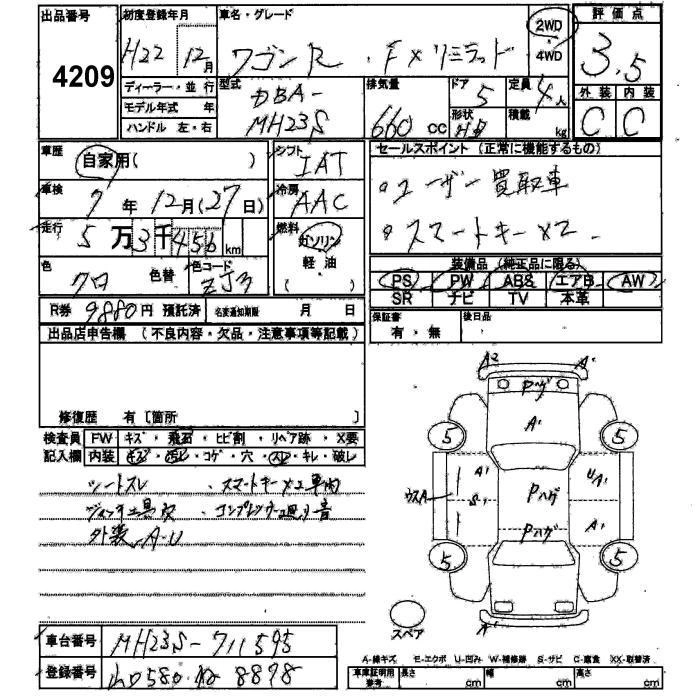 出品番号 4209
初度登録年月 H22 12月
車名・グレード ワゴンR FXリミテッド
2WD 4WD
評価点 3.5
外装 C 内装 C
ディーラー・並行
モデル年式 年
ハンドル 左・右
型式 DBA-MH23S
排気量 660 cc
ドア 5
形状 HB
定員 4人
積載 kg
車歴 自家用( )
シフト IAT
セールスポイント (正常に機能するもの)
車検 7年12月(27日)
冷房 AAC
・ユーザー買取車
走行 5万3千456km
燃料 ガソリン 軽油 ( )
・スマートキー×2
色 クロ 色替 色コード ZJ3
装備品 (純正品に限る)
PS PW ABS エアB AW
SR ナビ TV 本革
R券 9880円 預託済 名変通知期限 月 日
保証書 有・無 後日品
出品店申告欄 (不良内容・欠品・注意事項等記載)
修復歴 有〔箇所 〕
検査員 FW キズ・飛石・ヒビ割・リペア跡・X要
記入欄 内装 キズ・汚レ・コゲ・穴・スレ・キレ・破レ
シートスレ ・スマートキー×2車内
ジャッキ工具欠 ・コンプレッサー廻り音
外装 A・U
A2 A1
Pハゲ
A1
5 5
ウスA A1 S1 Pハゲ UA1
Pハゲ A1
5 5
A1
スペア
車台番号 MH23S-711595
登録番号 8898
A-線キズ E-エクボ U-凹み W-補修跡 S-サビ C-腐食 XX-取替済
車庫証明用参考 長さ cm 幅 cm 高さ cm